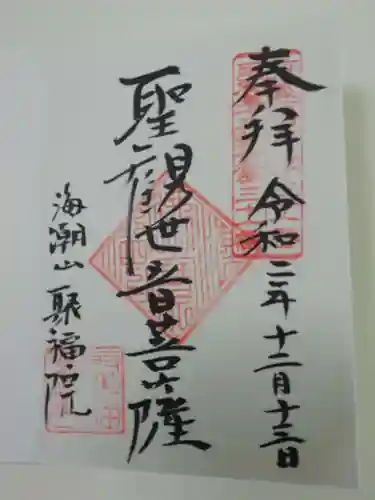 奉拝 令和二年 十二月十三日
聖観世音菩薩
海潮山 聚福院